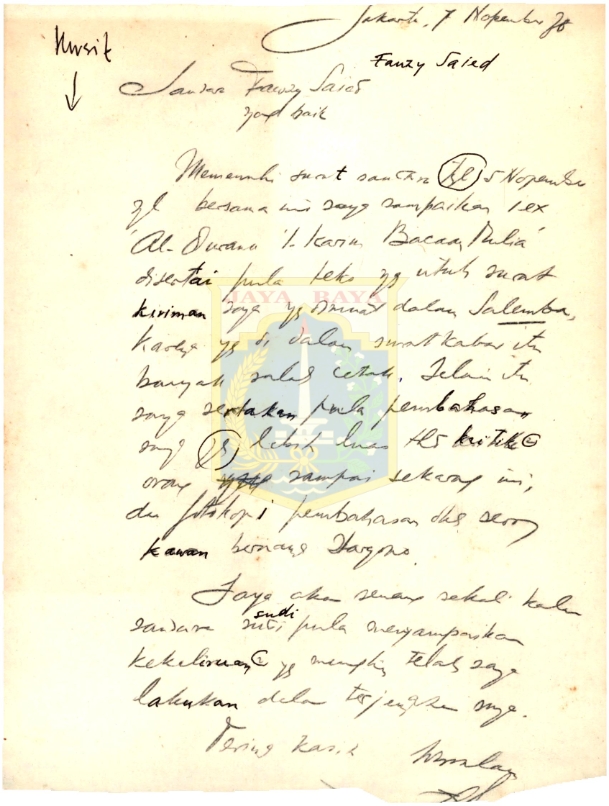 Jakarta, 7 Nopember 78
Kursif
Fauzy Saied
Saudara Fauzy Saied
yang baik
Memenuhi surat saudara tgl 5 Nopember
yl bersama ini saya sampaikan 1 ex
"Al-Qur'anu 'l-Karim Bacaan Mulia"
disertai pula teks yg utuh surat
JAYA RAYA
kiriman saya yg dimuat dalam Salemba,
karena yg di dalam surat kabar itu
banyak salah cetak. Selain itu
saya sertakan pula pembahasan
saya yg lebih luas kritik2
orang sampai sekarang ini,
dan fotokopi pembahasan oleh seorang
kawan bernama Haryono.
Saya akan senang sekali kalau
saudara sudi pula menyampaikan
kekeliruan2 yg mungkin telah saya
lakukan dalam terjemahan saya.
Terima kasih